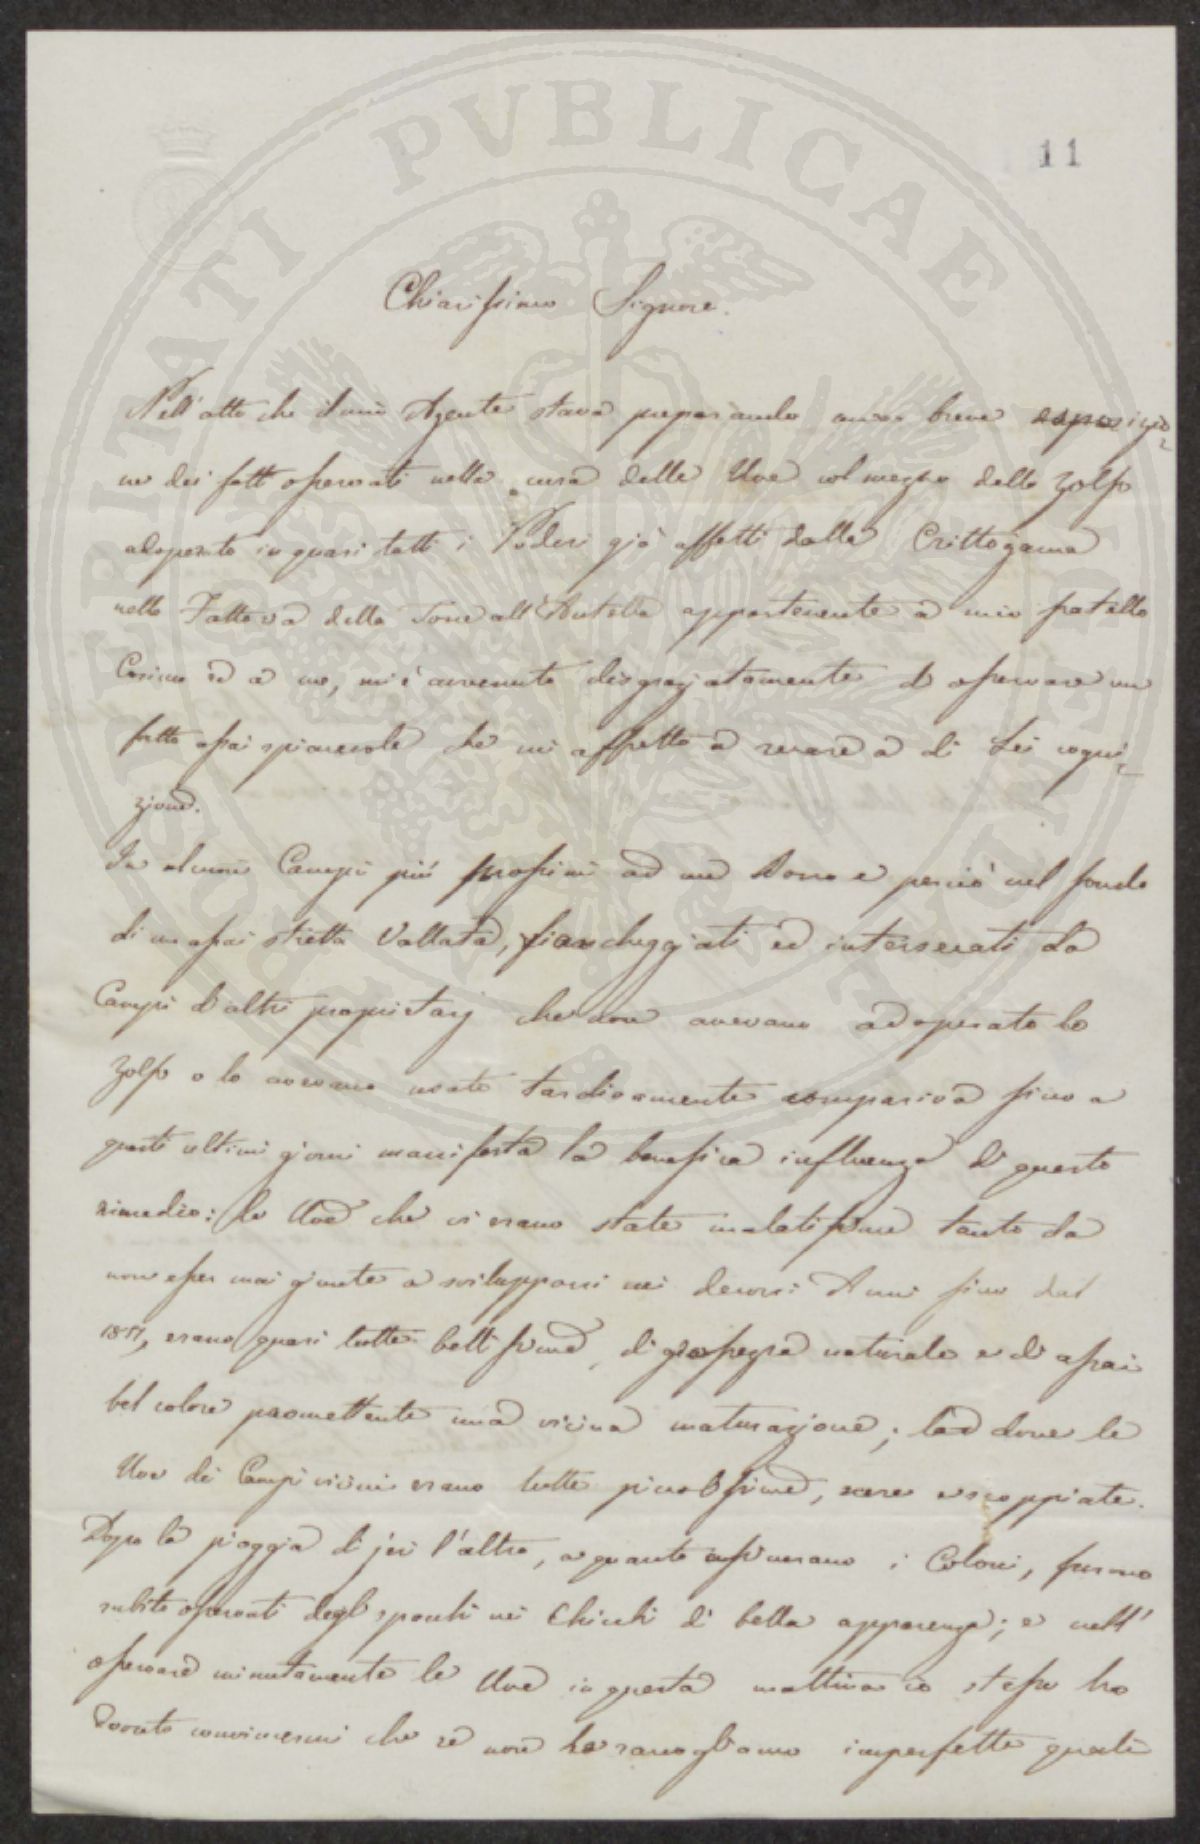 11
Chiarissimo Signore.
Nell'atto che il mio Agente stava preparando una breve esposizio=
ne dei fatti osservati nella cura delle Uve col mezzo dello Zolfo
adoperato in quasi tutti i Poderi già affetti dalla Crittogama
nella Fattoria della Torre all'Antella appartenente a mio fratello
Cosimo ed a me, mi è avvenuto disgraziatamente di osservare un
fatto assai spiacevole che mi affretto a recare a di Lei cogni=
zione.
In alcuni Campi più prossimi ad un Borro e perciò nel fondo
di un assai stretta Vallata, fiancheggiati ed intersecati da
Campi d'altri proprietarj che non avevano adoperato lo
Zolfo o lo avevano usato tardivamente compariva fino a
questi ultimi giorni manifesta la benefica influenza di questo
rimedio: le Uve che vi erano state malatissime tanto da
non esser mai giunte a svilupparsi nei decorsi Anni fino dal
1851, erano quasi tutte bellissime, di grossezza naturale e di assai
bel colore promettente una vicina maturazione; laddove le
Uve dei Campi vicini erano tutte piccolissime, nere e scoppiate.
Dopo la pioggia di jeri l'altro, a quanto assicurano i Coloni, furono
subito osservati degli spacchi nei Chicchi di bella apparenza; e nell'
osservare minutamente le Uve in questa mattina io stesso ho
dovuto convincermi che se non le raccogliamo imperfette quali